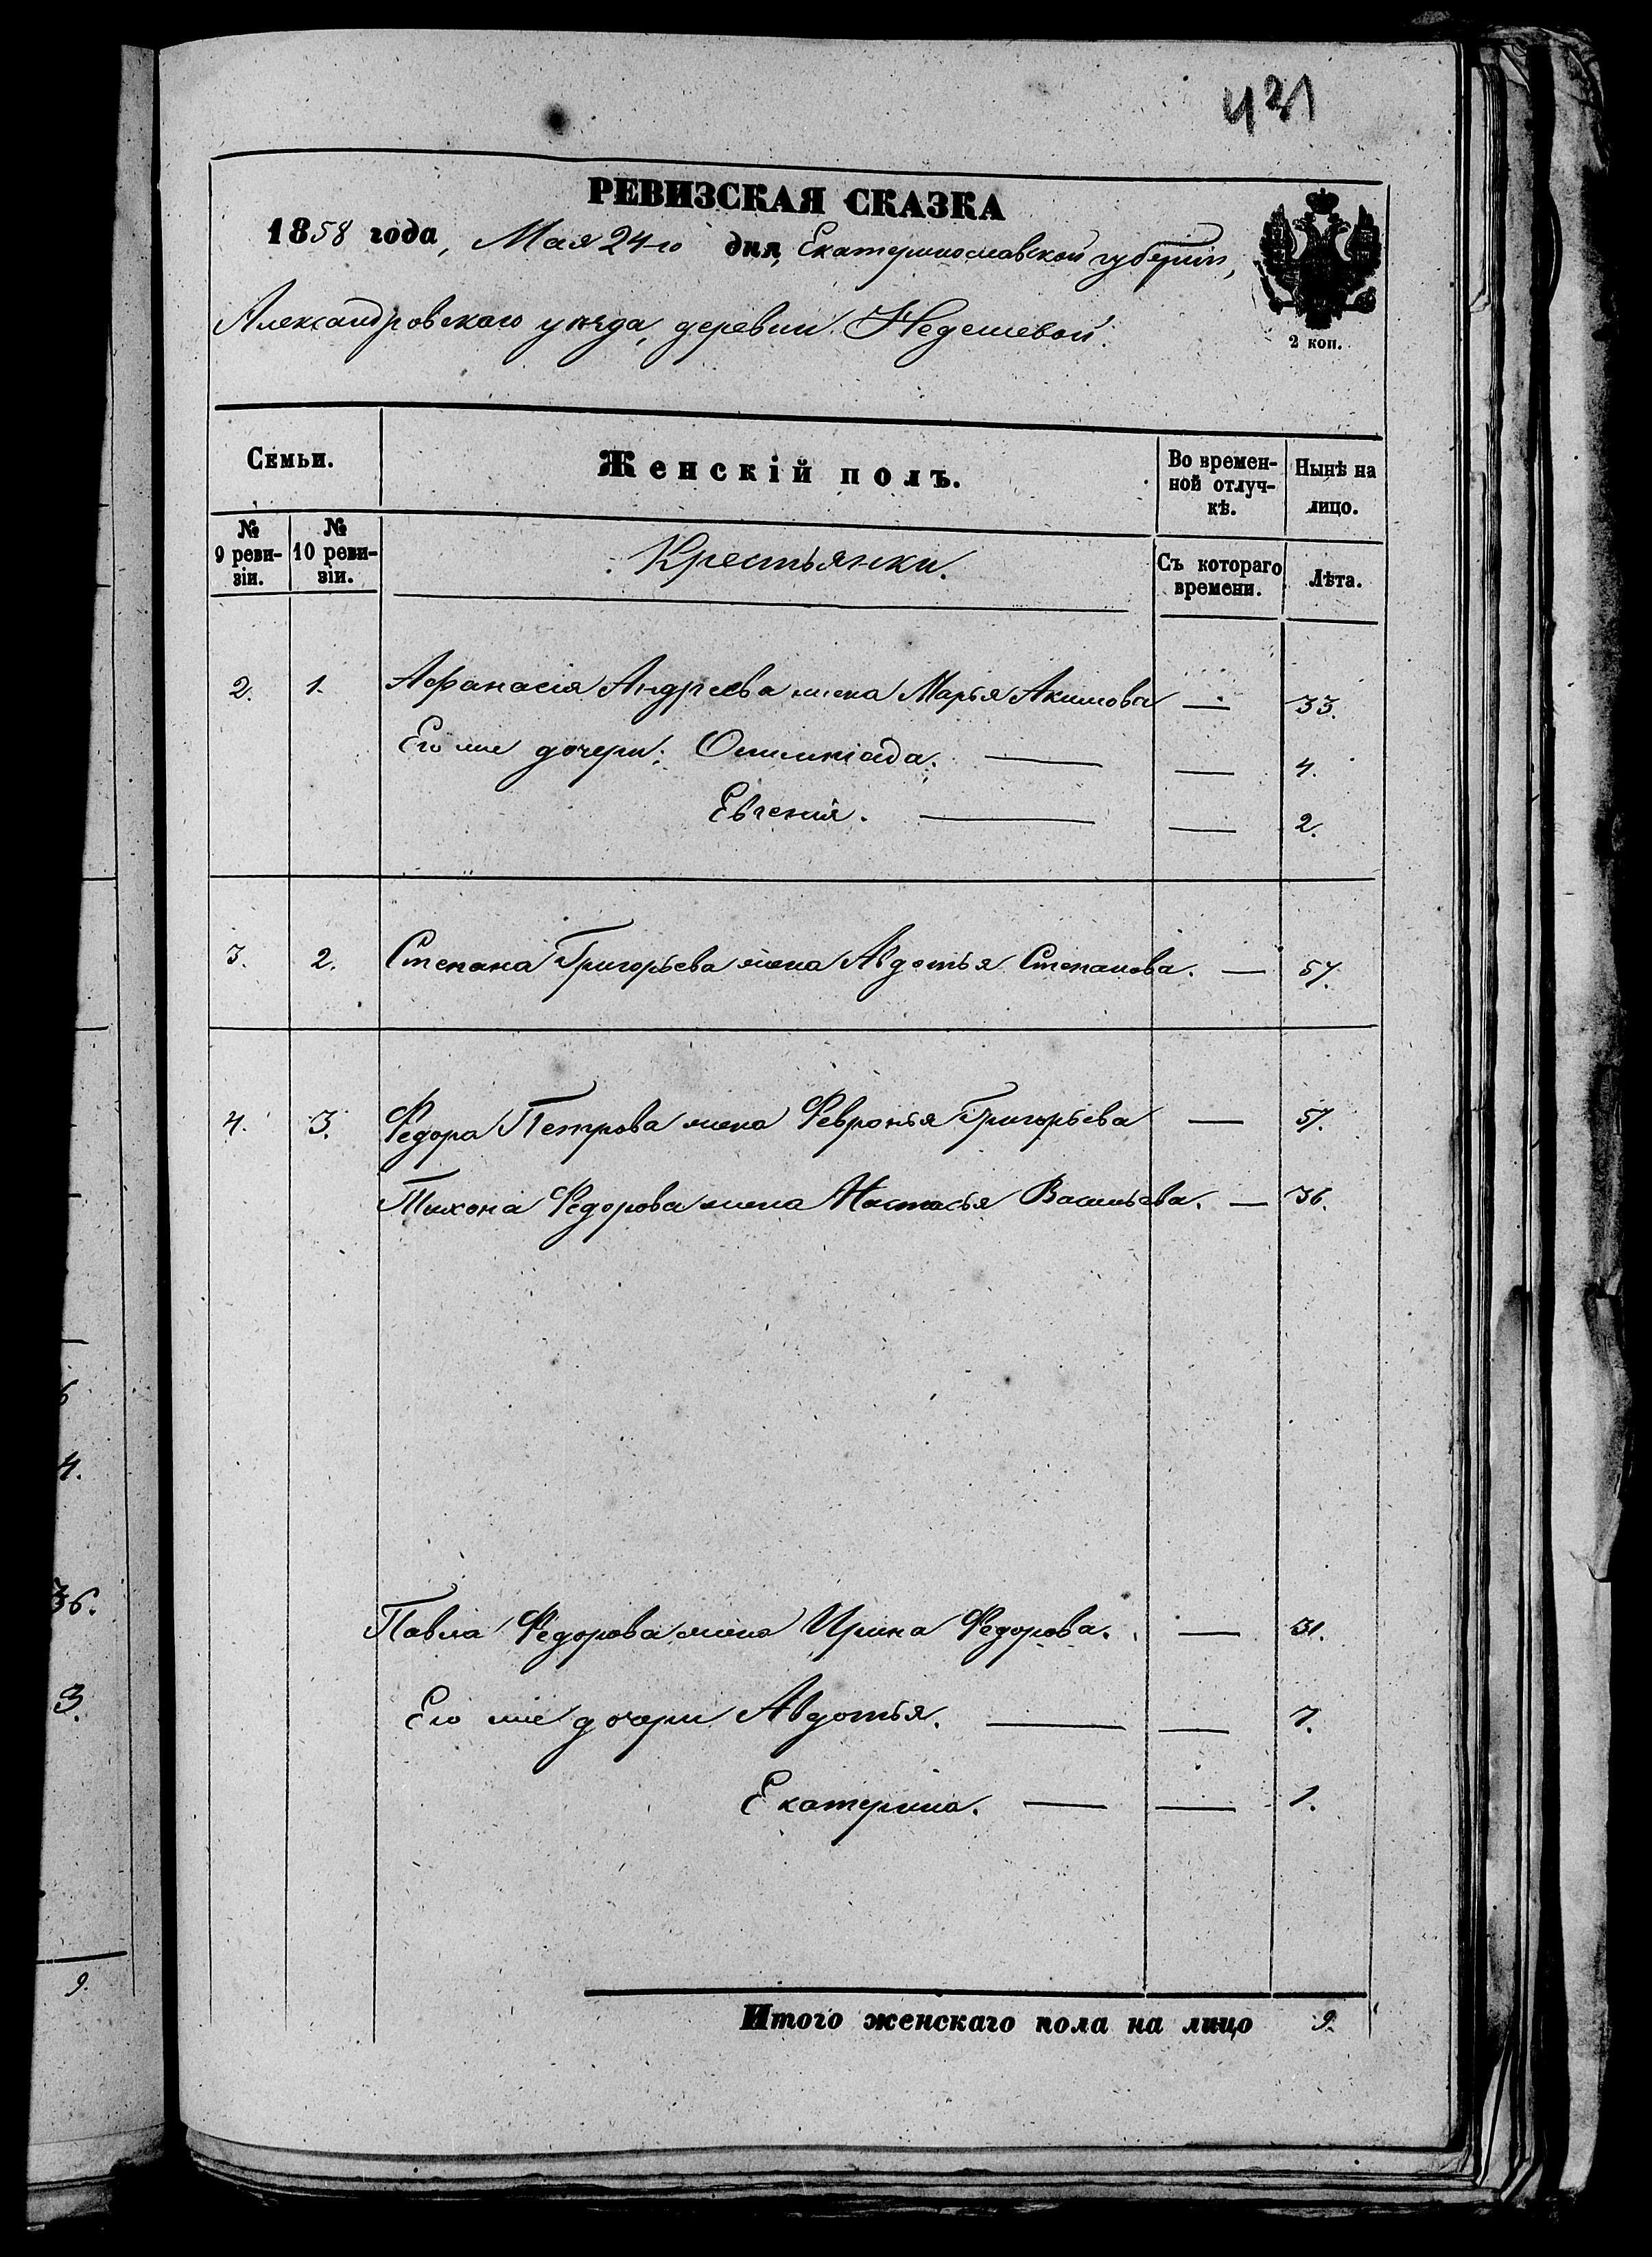 431
РЕВИЗСКАЯ СКАЗКА
1858 года, Мая 24-го дня, Екатеринославской губерніи,
Александровскаго уѣзда, деревни Недешевой.
2 коп.
Семьи.
Женскій полъ.
Во времен-
ной отлуч-
кѣ.
Нынѣ на
лицо.
№
9 реви-
зіи.
№
10 реви-
зіи.
Крестьянки.
Съ котораго
времени.
Лѣта.
2. 1. Афанасія Андреева жена Марья Акимова — 33.
Его же дочери: Олимпіада. — — 4.
Евгенія. — — 2.
3. 2. Степана Григорьева жена Авдотья Степанова. — 57.
4. 3. Федора Петрова жена Февронья Григорьева — 57.
Тихона Федорова жена Настасья Васильева. — 36.
Павла Федорова жена Ирина Федорова. — 31.
Его же дочери Авдотья. — — 7.
Екатерина. — — 1.
Итого женскаго пола на лицо 9.
6
4.
36.
3.
9.